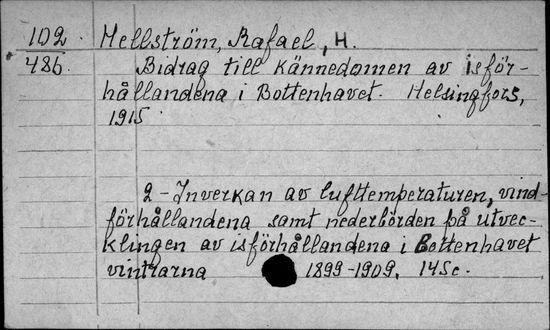 102. Hellström, Rafael, H.
486. Bidrag till kännedomen av isför-
hållandena i Bottenhavet. Helsingfors,
1915
2 - Inverkan av lufttemperaturen, vind-
förhållandena samt nederbörden på utvec-
klingen av isförhållandena i Bottenhavet
vintrarna 1899-1909. 145c.